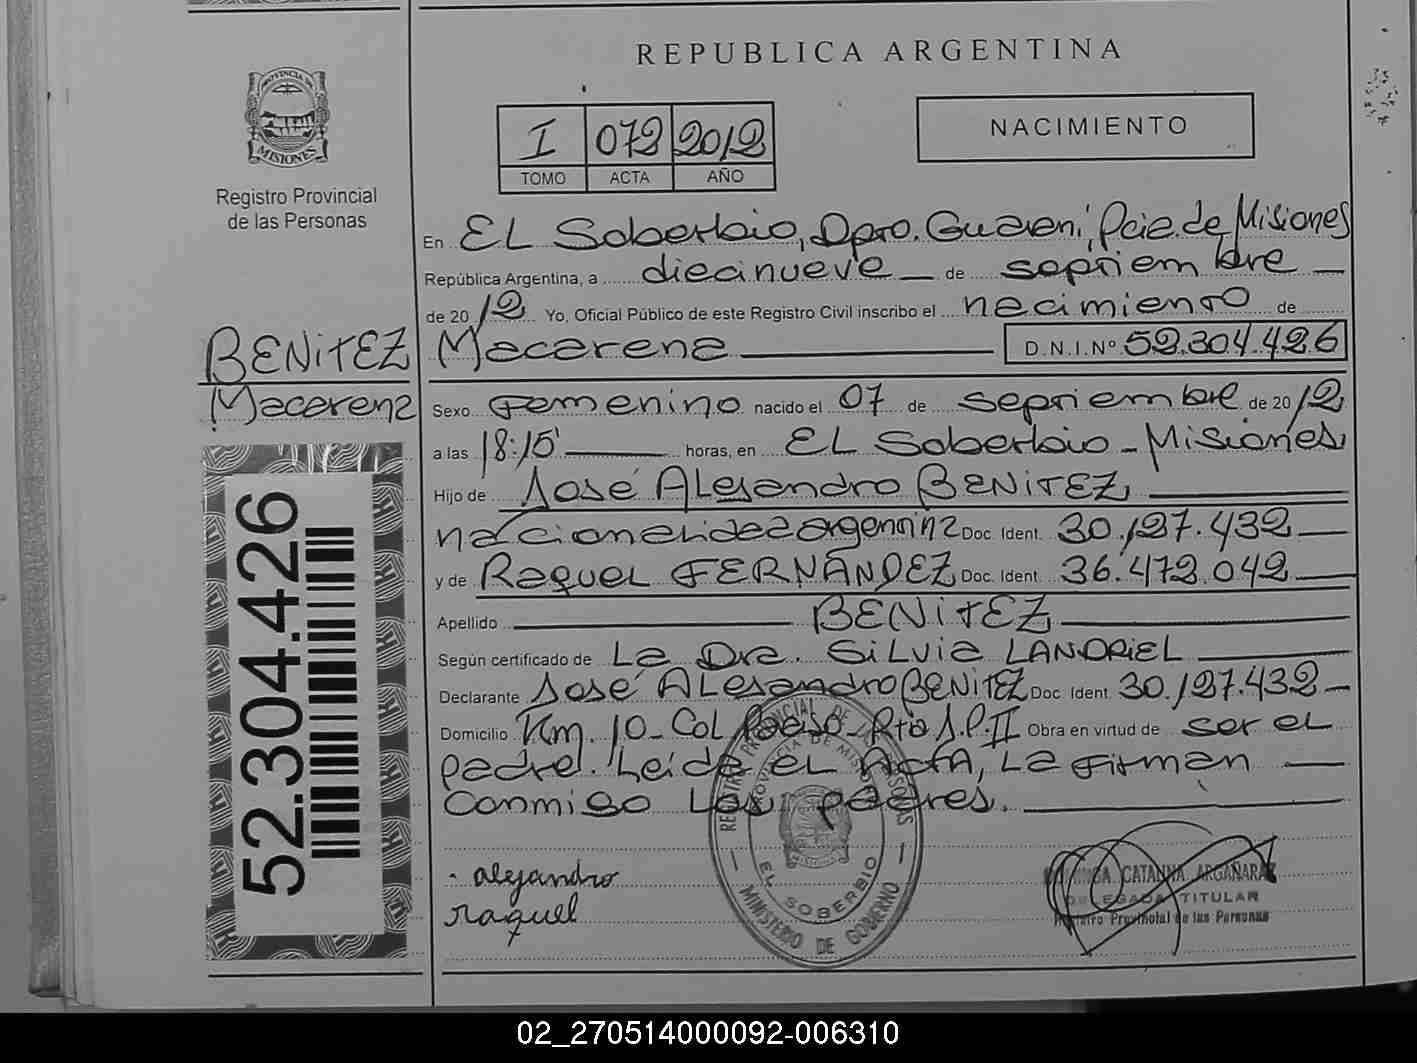 REPUBLICA ARGENTINA
PROVINCIA DE
MISIONES
Registro Provincial
de las Personas
I 072 2012
TOMO ACTA AÑO
NACIMIENTO
En EL Soberbio, Dpto. Guarani, Pcia. de Misiones
República Argentina, a diecinueve de septiembre
de 2012 Yo, Oficial Público de este Registro Civil inscribo el nacimiento de
BENiTEZ
Macarena
Macarena D.N.I.Nº 52.304.426
Sexo Femenino nacido el 07 de septiembre de 2012
a las 18:15' horas, en EL Soberbio - Misiones
Hijo de José ALejandro BENiTEZ,
nacionalidad argentina Doc. Ident. 30.127.432
y de Raquel FERNÁNDEZ Doc. Ident. 36.472.042
Apellido BENiTEZ
Según certificado de La Dra. SiLvia LANDRiEL
Declarante José ALejandro BENiTEZ Doc Ident 30.127.432
Domicilio Km. 10 - Col Paraiso - Rto J.P.II Obra en virtud de ser el
padre. Leida el Acta, La firman
conmigo los padres.
52.304.426
alejandro
raquel
REGISTRO PROVINCIAL DE LAS PERSONAS
PROVINCIA DE MISIONES
EL SOBERBIO
MINISTERIO DE GOBIERNO
CATALINA ARGAÑARAZ
DELEGADA TITULAR
Registro Provincial de las Personas
02_270514000092-006310